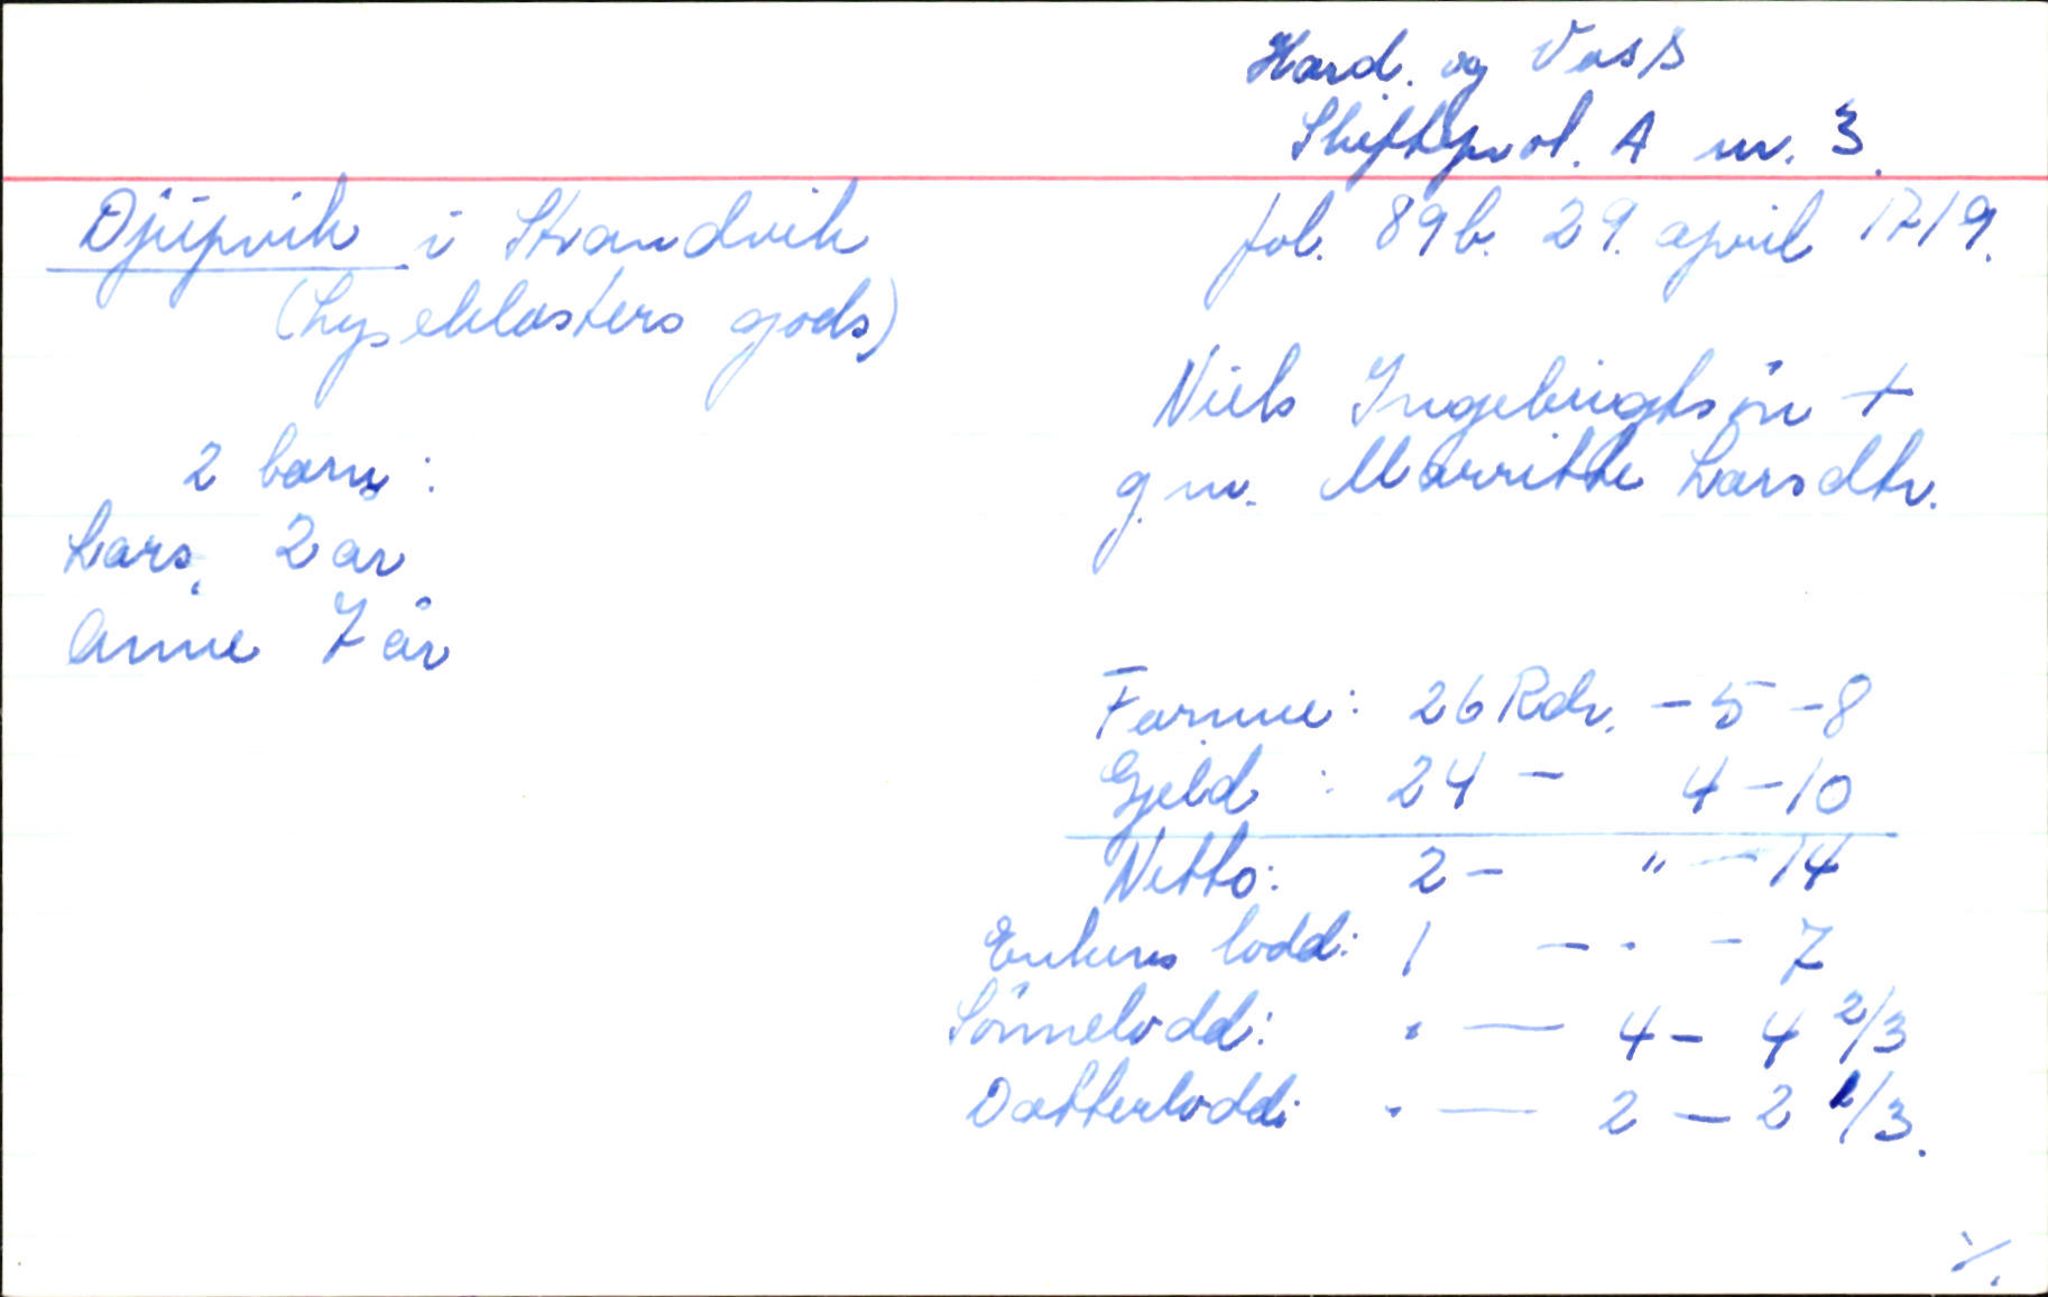 Hard. og Voss
Skiftprol. A nr. 3.
Djúpvik i Strandvik
fol. 89b. 29. april 1719.
(Lyseklosters gods)
Niels Ingebrigtsön +
g.m. Marritte Larsdtr.
2 barn:
Lars, 2 år
Anne 7 år
Formue: 26 Rdr. - 5 - 8
Gjeld : 24 - 4 - 10
Netto: 2 - " - 14
Enkens lodd: 1 - . - 7
Sönnelodd: . - 4 - 4 2/3
Datterlodd: . - 2 - 2 1/3.